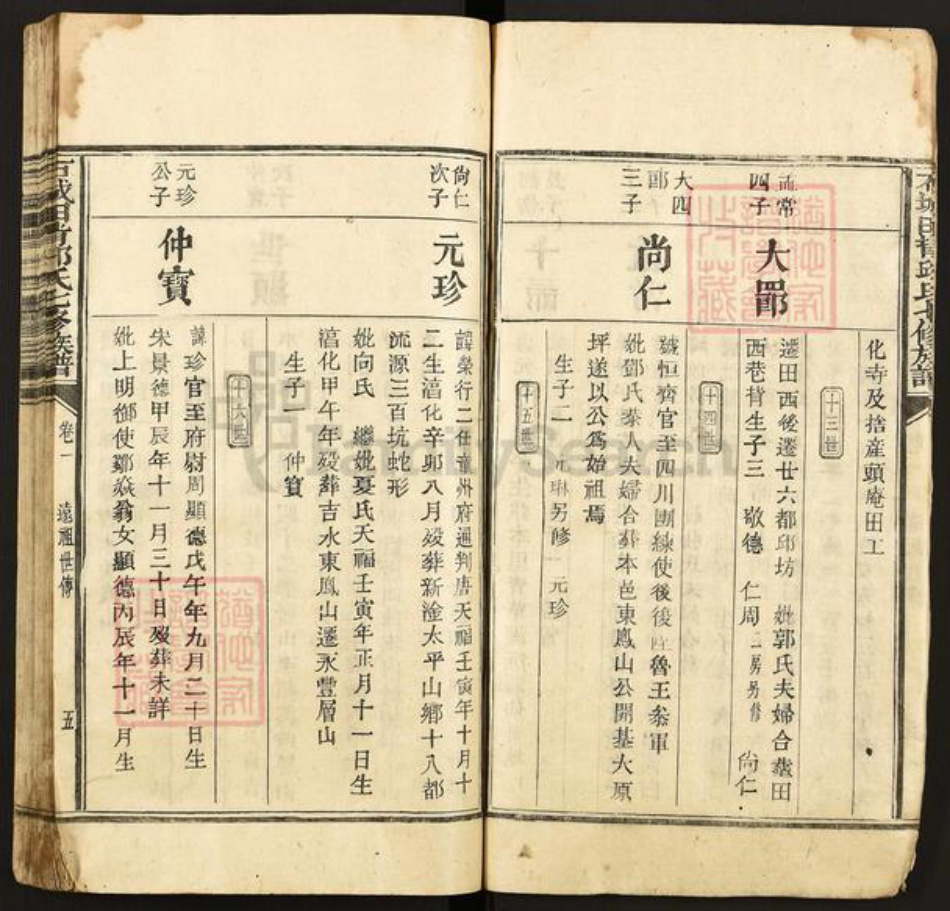 化寺及捨産頭庵田工
十三世
孟常
四子
大郹
遷田西後遷廿六都邱坊 妣郭氏夫婦合塟田
西巷背生子三 敬德 仁周 二房另修 尚仁
十四世
大四
郎
三子
尚仁
號恒齊官至四川團練使後後 魯王叅軍
妣鄧氏泰人夫婦合葬本邑東鳳山公開基大原
坪遂以公爲始祖焉
生子二 元琳另修 元珍
十五世
尙仁
次子
元珍
諱榮行二仕 州府通判唐天福壬寅年十月十
二生湻化辛卯八月殁葬新淦太平山鄉十八都
流源三百坑蛇形
妣向氏 繼妣夏氏天福壬寅年正月十一日生
湻化甲午年殁葬吉水東鳳山遷永豐層山
生子一 仲寶
十六世
元珍
公子
仲寶
諱珍官至府尉周顯德戊午年九月二十日生
宋景德甲辰年十一月三十日殁葬未詳
妣上明鄉使鄒焱翁女顯德丙辰年十一月生
石城田背邱氏七修族譜
卷一
遠祖世傳
五